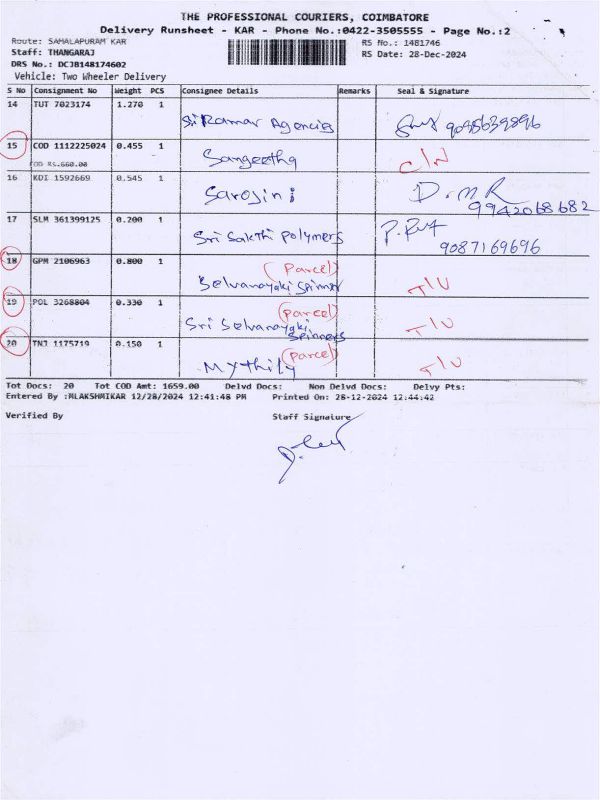 THE PROFESSIONAL COURIERS, COIMBATORE
Delivery Runsheet - KAR - Phone No.:0422-3505555 - Page No.:2
Route: SAMALAPURAM KAR
RS No.: 1481746
Staff: THANGARAJ
RS Date: 28-Dec-2024
DRS No.: DCJB148174602
Vehicle: Two Wheeler Delivery
S No Consignment No Weight PCS Consignee Details Remarks Seal & Signature
14 TUT 7023174 1.270 1
Sri Ramar Agencies 9095639896
15 COD 1112225024 0.455 1
Sangeetha C/N
COD Rs.660.00
16 KDI 1592669 0.545 1
Sarojini D.
9942068682
17 SLM 361399125 0.200 1
Sri Sakthi polymers P.
9087169696
18 GPM 2106963 0.800 1 (Parcel)
Selvanayaki Spinner T/U
19 POL 3268804 0.330 1 (parcel)
Sri Selvanayaki T/U
Spinners
20 TNJ 1175719 0.150 1 (parcel)
Mythily T/U
Tot Docs: 20 Tot COD Amt: 1659.00 Delvd Docs: Non Delvd Docs: Delvy Pts:
Entered By :MLAKSHMIKAR 12/28/2024 12:41:48 PM Printed On: 28-12-2024 12:44:42
Verified By Staff Signature